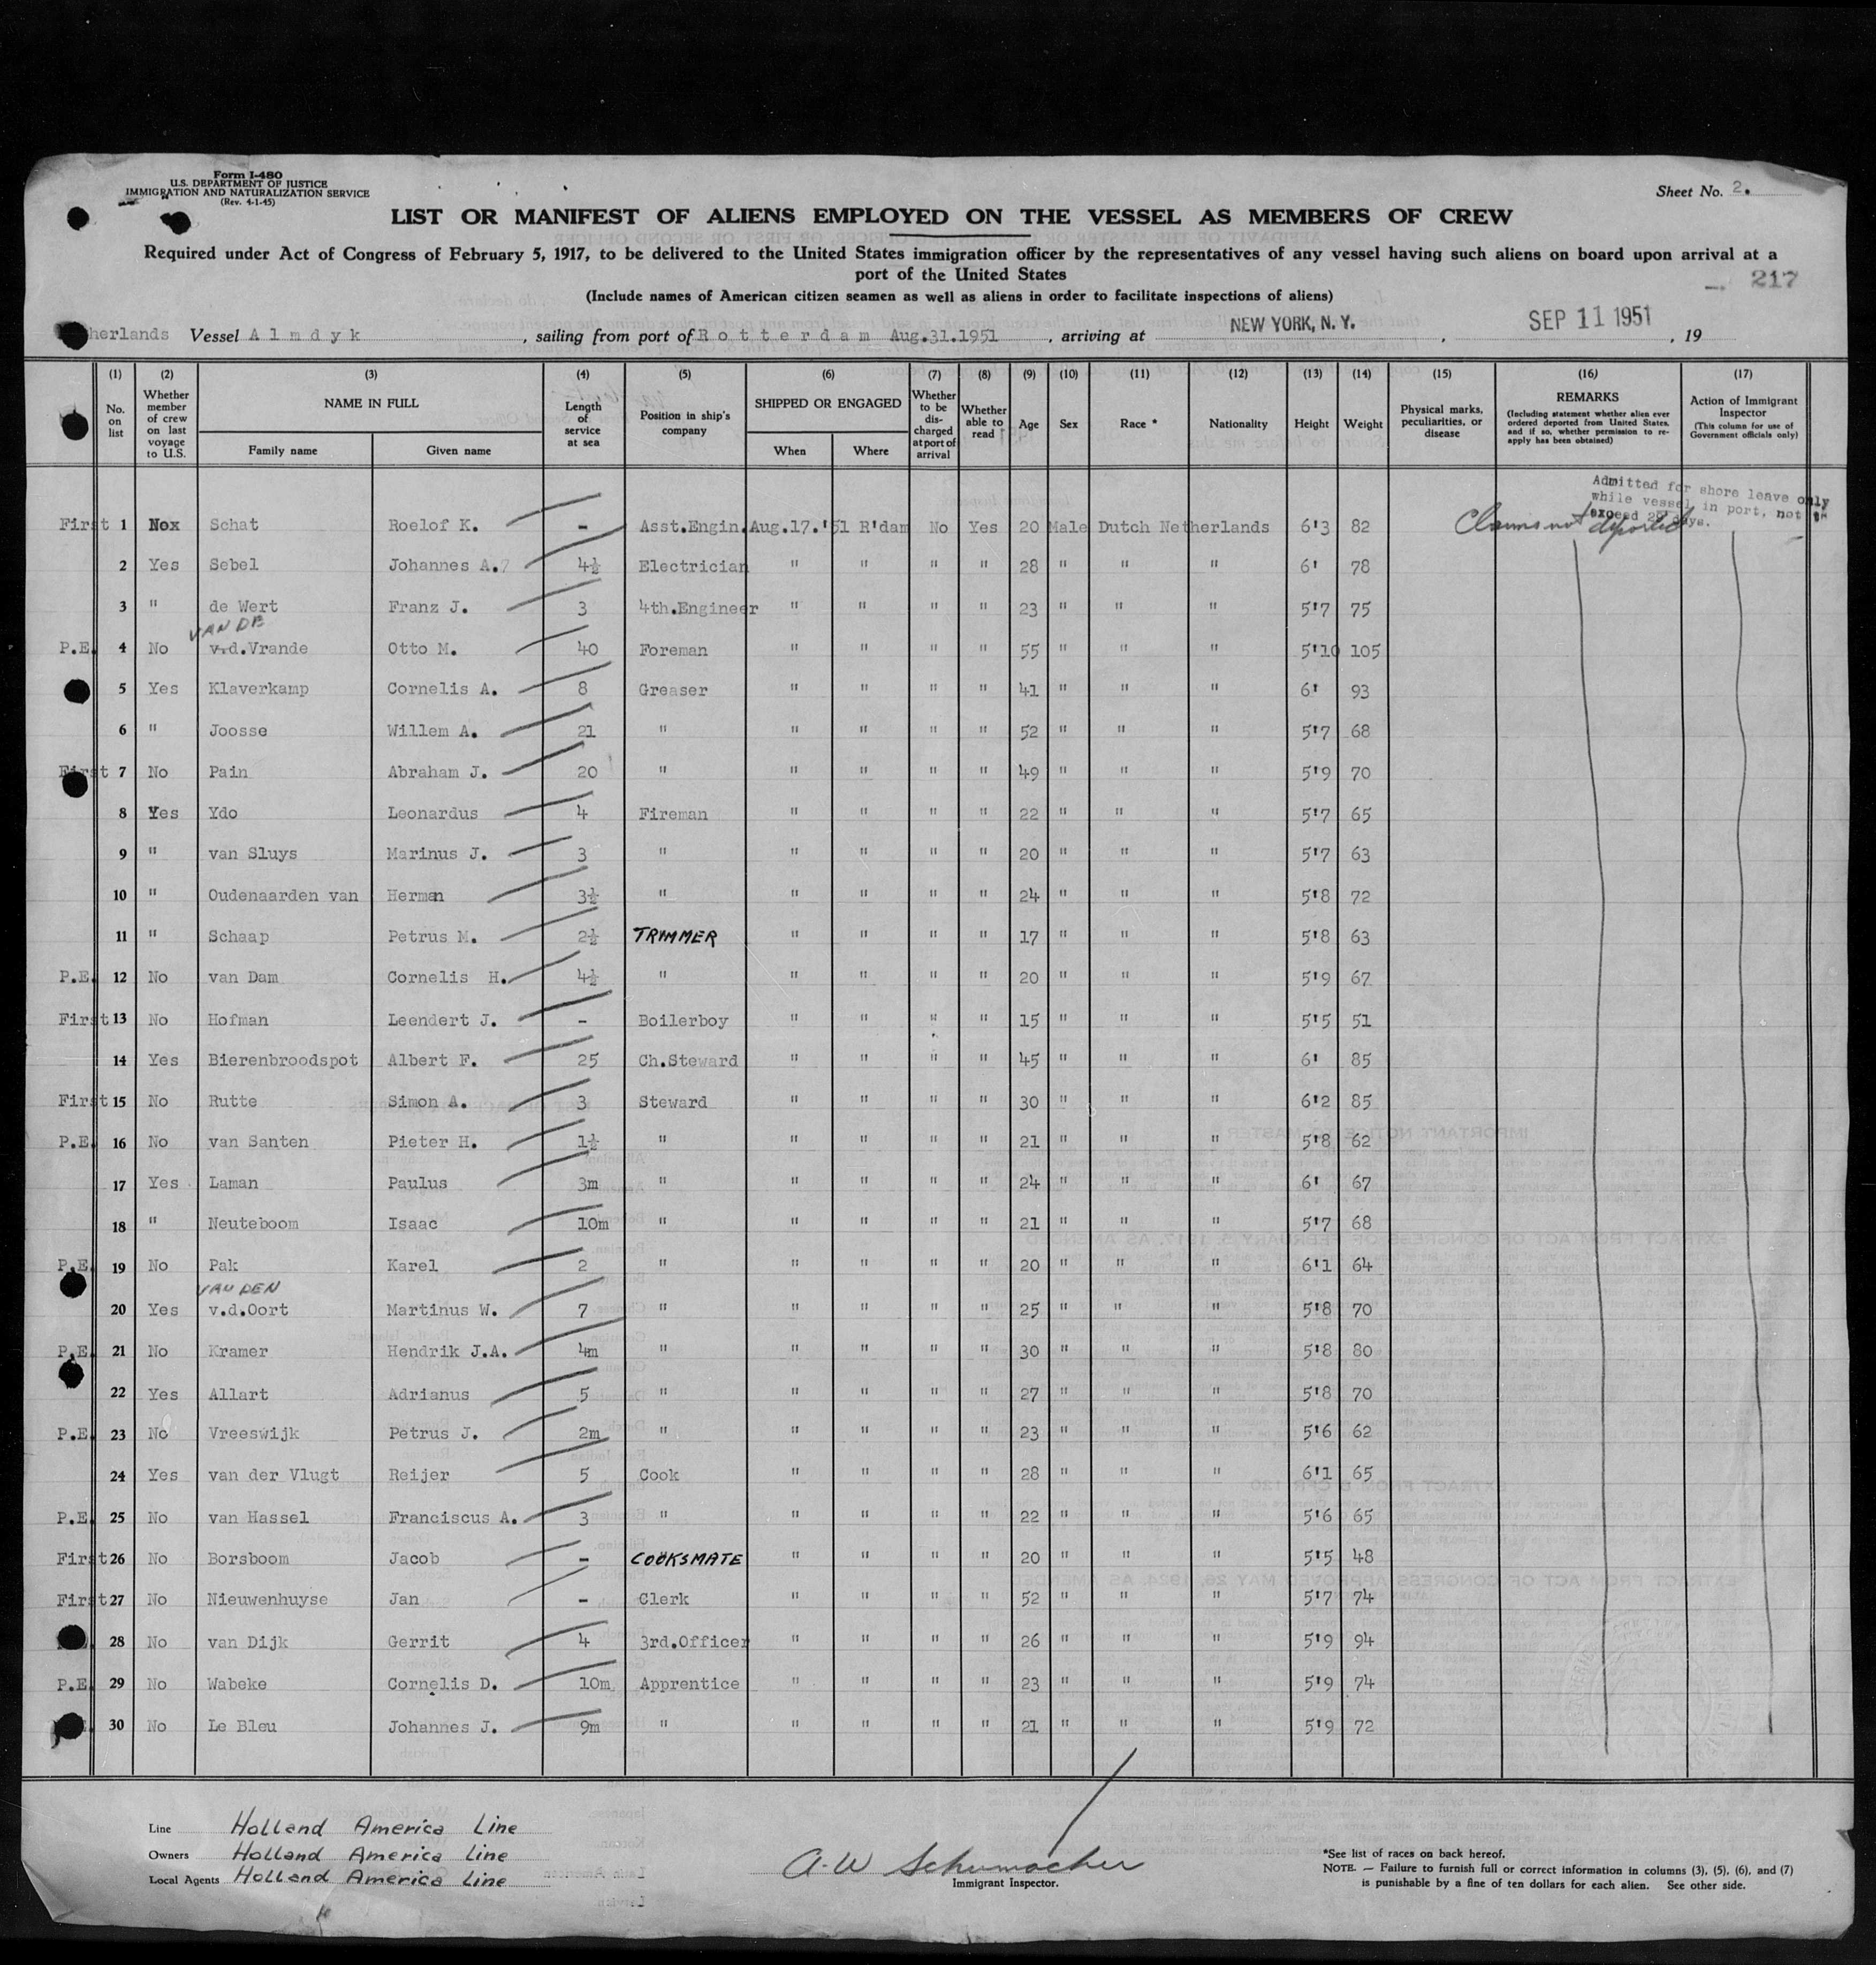 Form I-480
U.S. DEPARTMENT OF JUSTICE
IMMIGRATION AND NATURALIZATION SERVICE
(Rev. 4-1-45)
Sheet No. 2.
LIST OR MANIFEST OF ALIENS EMPLOYED ON THE VESSEL AS MEMBERS OF CREW
Required under Act of Congress of February 5, 1917, to be delivered to the United States immigration officer by the representatives of any vessel having such aliens on board upon arrival at a
port of the United States
217
(Include names of American citizen seamen as well as aliens in order to facilitate inspections of aliens)
herlands Vessel Almdyk, sailing from port of Rotterdam Aug.31.1951, arriving at NEW YORK, N. Y., SEP 11 1951, 19
(1) (2) (3) (4) (5) (6) (7) (8) (9) (10) (11) (12) (13) (14) (15) (16) (17)
No. on list Whether member of crew on last voyage to U.S. NAME IN FULL Family name Given name Length of service at sea Position in ship's company SHIPPED OR ENGAGED When Where Whether to be discharged at port of arrival Whether able to read Age Sex Race * Nationality Height Weight Physical marks, peculiarities, or disease REMARKS (Including statement whether alien ever ordered deported from United States, and if so, whether permission to re-apply has been obtained) Action of Immigrant Inspector (This column for use of Government officials only)
Admitted for shore leave only
while vessel in port, not to
exceed 29 days.
First 1 Nox Schat Roelof K. - Asst.Engin. Aug.17.'51 R'dam No Yes 20 Male Dutch Netherlands 6'3 82 Claims not deported
2 Yes Sebel Johannes A. 4½ Electrician " " " " 28 " " " 6' 78
3 " de Wert Franz J. 3 4th.Engineer " " " " 23 " " " 5'7 75
VAN DE
P.E. 4 No v.d.Vrande Otto M. 40 Foreman " " " " 55 " " " 5'10 105
5 Yes Klaverkamp Cornelis A. 8 Greaser " " " " 41 " " " 6' 93
6 " Joosse Willem A. 21 " " " " " 52 " " " 5'7 68
First 7 No Pain Abraham J. 20 " " " " " 49 " " " 5'9 70
8 Yes Ydo Leonardus 4 Fireman " " " " 22 " " " 5'7 65
9 " van Sluys Marinus J. 3 " " " " " 20 " " " 5'7 63
10 " Oudenaarden van Herman 3½ " " " " " 24 " " " 5'8 72
11 " Schaap Petrus M. 2½ TRIMMER " " " " 17 " " " 5'8 63
P.E. 12 No van Dam Cornelis H. 4½ " " " " " 20 " " " 5'9 67
First 13 No Hofman Leendert J. - Boilerboy " " " " 15 " " " 5'5 51
14 Yes Bierenbroodspot Albert F. 25 Ch.Steward " " " " 45 " " " 6' 85
First 15 No Rutte Simon A. 3 Steward " " " " 30 " " " 6'2 85
P.E. 16 No van Santen Pieter H. 1½ " " " " " 21 " " " 5'8 62
17 Yes Laman Paulus 3m " " " " " 24 " " " 6' 67
18 " Neuteboom Isaac 10m " " " " " 21 " " " 5'7 68
P.E. 19 No Pak Karel 2 " " " " " 20 " " " 6'1 64
VAN DEN
20 Yes v.d.Oort Martinus W. 7 " " " " " 25 " " " 5'8 70
P.E. 21 No Kramer Hendrik J.A. 4m " " " " " 30 " " " 5'8 80
22 Yes Allart Adrianus 5 " " " " " 27 " " " 5'8 70
P.E. 23 No Vreeswijk Petrus J. 2m " " " " " 23 " " " 5'6 62
24 Yes van der Vlugt Reijer 5 Cook " " " " 28 " " " 6'1 65
P.E. 25 No van Hassel Franciscus A. 3 " " " " " 22 " " " 5'6 65
First 26 No Borsboom Jacob - COOKSMATE " " " " 20 " " " 5'5 48
First 27 No Nieuwenhuyse Jan - Clerk " " " " 52 " " " 5'7 74
28 No van Dijk Gerrit 4 3rd.Officer " " " " 26 " " " 5'9 94
P.E. 29 No Wabeke Cornelis D. 10m Apprentice " " " " 23 " " " 5'9 74
30 No Le Bleu Johannes J. 9m " " " " " 21 " " " 5'9 72
Line Holland America Line
Owners Holland America Line
Local Agents Holland America Line
A. W Schumacher
Immigrant Inspector.
*See list of races on back hereof.
NOTE. — Failure to furnish full or correct information in columns (3), (5), (6), and (7)
is punishable by a fine of ten dollars for each alien. See other side.